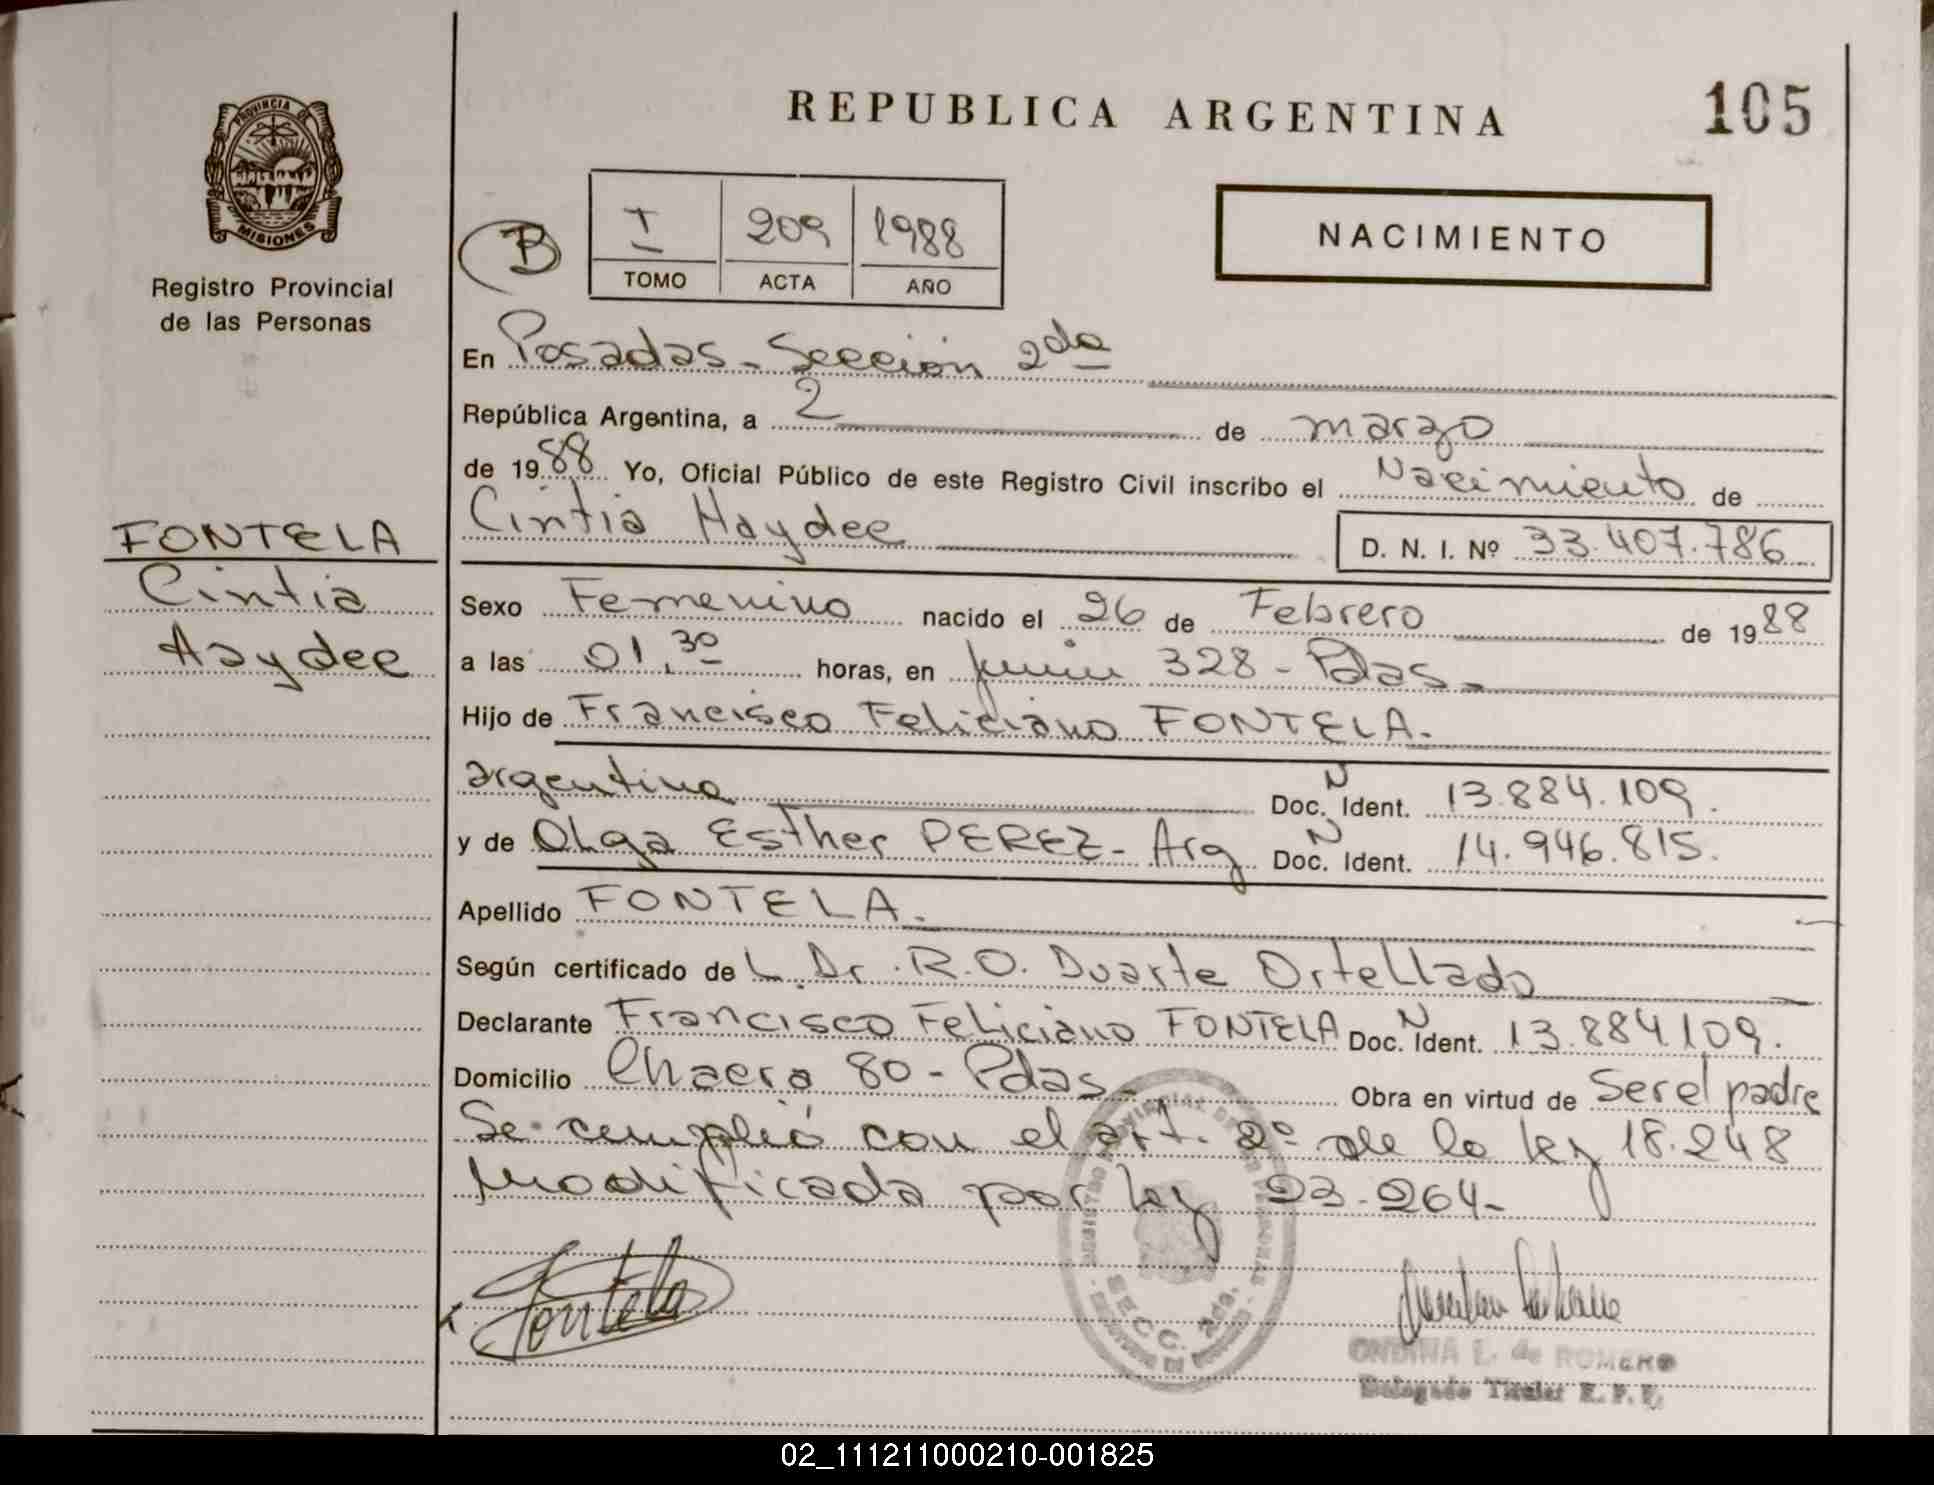 REPUBLICA ARGENTINA
105
PROVINCIA DE
MISIONES
Registro Provincial
de las Personas
B
I 209 1988
TOMO ACTA AÑO
NACIMIENTO
En Posadas - Sección 2da
República Argentina, a 2 de marzo
de 1988 Yo, Oficial Público de este Registro Civil inscribo el Nacimiento de
Cintia Haydee D. N. I. Nº 33.407.786
FONTELA
Cintia
Haydee
Sexo Femenino nacido el 26 de Febrero de 1988
a las 01.30 horas, en Junin 328 - Pdas.
Hijo de Francisco Feliciano FONTELA.
argentino Doc. N Ident. 13.884.109.
y de Olga Esther PEREZ - Arg Doc. N Ident. 14.946.815.
Apellido FONTELA.
Según certificado de L. Dr. R.O. Duarte Ortellado
Declarante Francisco Feliciano FONTELA Doc. N Ident. 13.884109.
Domicilio Chacra 80 - Pdas. Obra en virtud de Ser el padre
Se cumplió con el art. 2º de la ley 18.248
Modificada por ley 23.264-
Fontela
SECC. 2da.
ONDINA L. de ROMERO
Delegado Titular R. P. P.
02_111211000210-001825